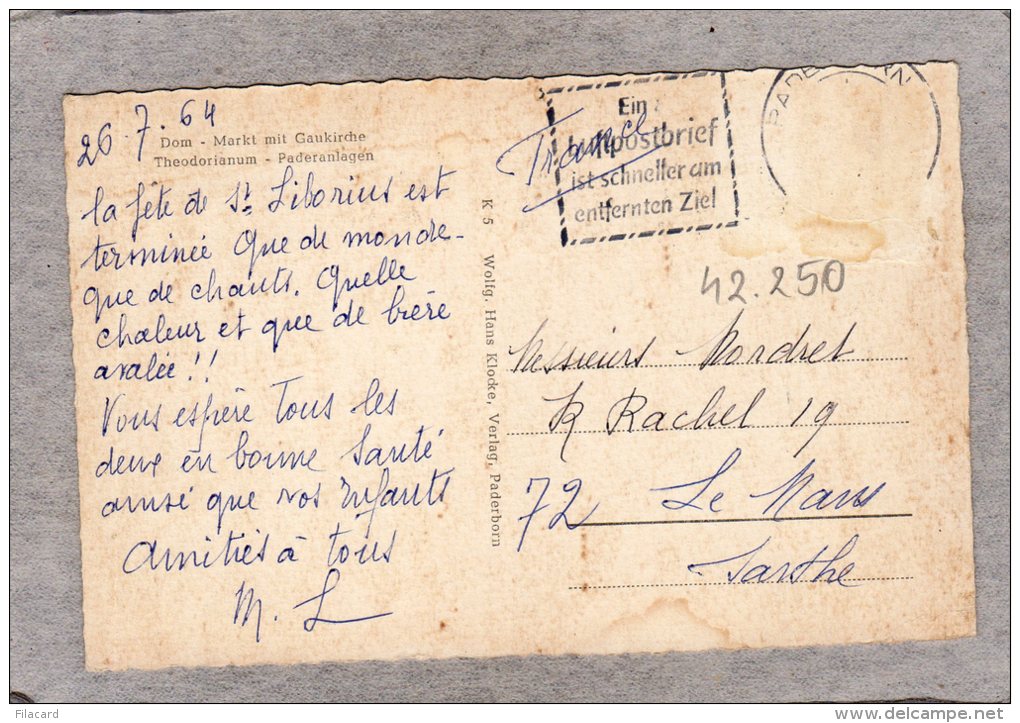 26.7.64
Dom - Markt mit Gaukirche
Theodorianum - Paderanlagen
la fête de St Liborius est
terminée que de monde -
que de chants. quelle
chaleur et que de bière
avalée !!
Vous espère tous les
deux en bonne santé
ainsi que vos Enfants
Amitiés à tous
M. L
K 5 Wolfg. Hans Klocke, Verlag, Paderborn
Ein
Luftpostbrief
ist schneller am
entfernten Ziel
42.250
Messieurs Mordret
R Rachel 19
72 Le Mans
Sarthe
Filacard
http://www.delcampe.net